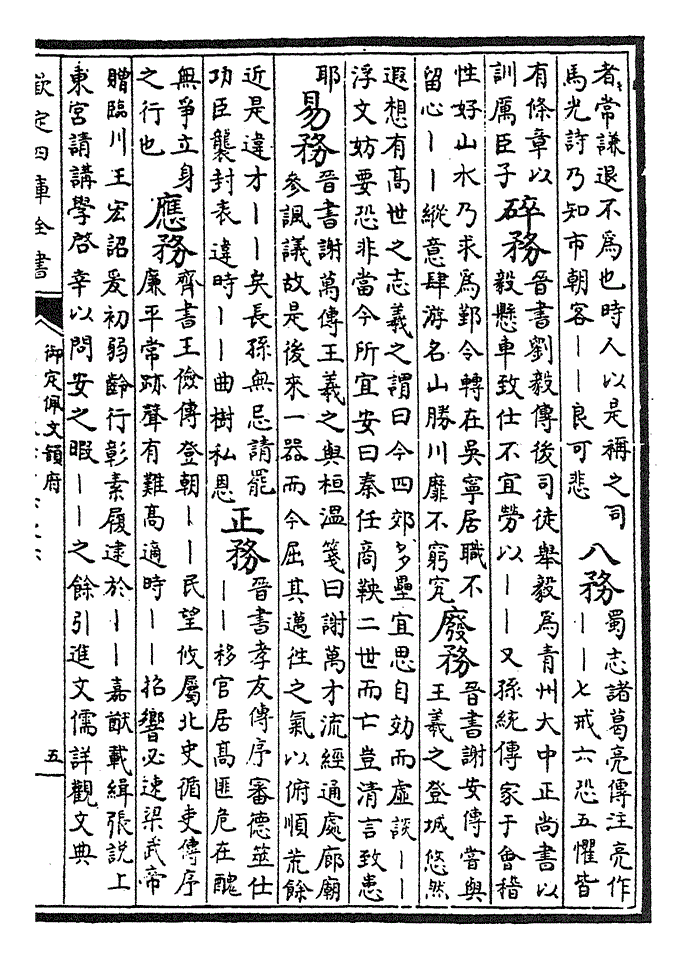 者常謙退不爲也時人以是稱之司
馬光詩乃知市朝客丨丨良可悲
八務
蜀志諸葛亮傳注亮作
丨丨七戒六恐五懼皆
有條章以
訓厲臣子
碎務
晉書劉毅傳後司徒舉毅爲青州大中正尚書以
毅懸車致仕不宜勞以丨丨又孫統傳家于會稽
性好山水乃求爲鄞令轉在吳寧居職不
留心丨丨縱意肆游名山勝川靡不窮究
廢務
晉書謝安傳嘗與
王羲之登城悠然
遐想有高世之志羲之謂曰今四郊多壘宜思自効而虛談丨丨
浮文妨要恐非當今所宜安曰秦任商鞅二世而亡豈清言致患
耶
易務
晉書謝萬傳王羲之與桓溫箋曰謝萬才流經通處廊廟
參諷議故是後來一器而今屈其邁往之氣以俯順荒餘
近是違才丨丨矣長孫無忌請罷
功臣襲封表違時丨丨曲樹私恩
正務
晉書孝友傳序審德筮仕
丨丨移官居高匪危在醜
無爭立身
之行也
應務
齊書王儉傳登朝丨丨民望攸屬北史循吏傳序
廉平常跡聲有難高適時丨丨招響必速梁武帝
贈臨川王宏詔爰初弱齡行彰素履逮於丨丨嘉猷載緝張說上
東宮請講學啓幸以問安之暇丨丨之餘引進文儒詳觀文典
欽定四庫全書
御定佩文韻府
五